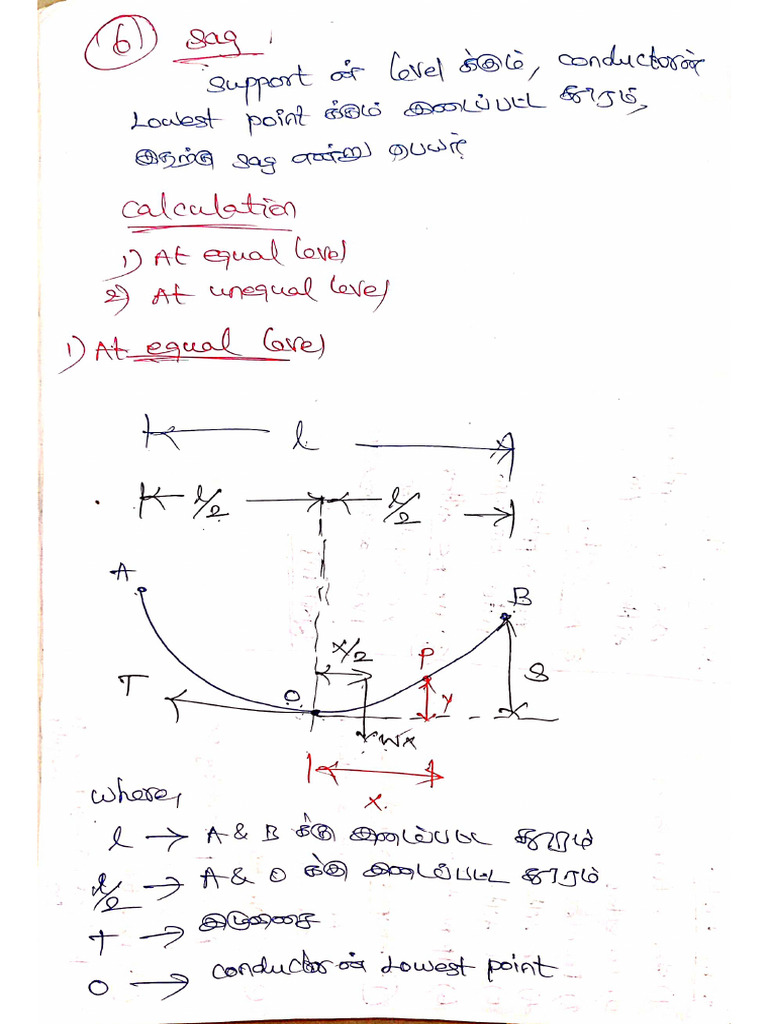 6 Sag :
Support ன் Level க்கும், conductorன்
Lowest point க்கும் இடைப்பட்ட தூரம்,
இதற்கு sag என்று பெயர்.
Calculation
1) At equal level
2) At unequal level
1) At equal level
l
l/2 l/2
A
B
x/2
P
T
O
y
S
wx
x.
where,
l → A & B க்கு இடைப்பட்ட தூரம்
l/2 → A & O க்கு இடைப்பட்ட தூரம்.
T → இழுவிசை
O → conductorன் Lowest point